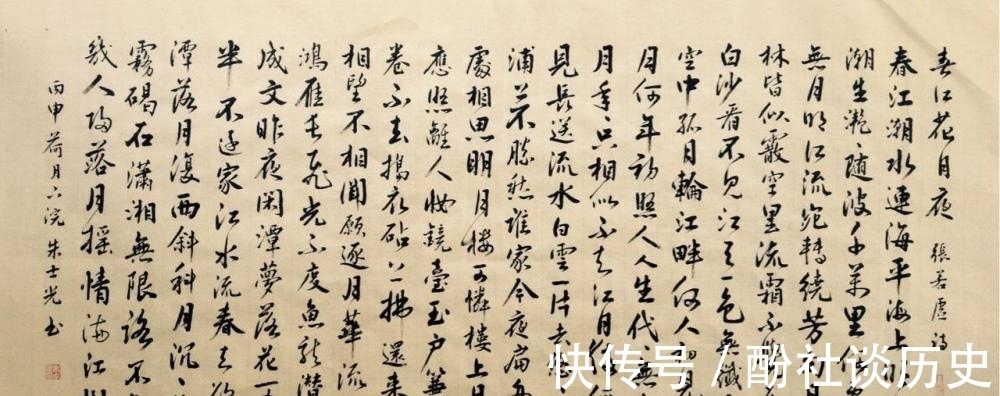 春江花月夜 張若虛詩
春江潮水連海平海上
潮生灩〻随波千萬里
無月明江流宛轉繞芳甸
林皆似霰空里流霜不
白沙看不見江天一色無纖
空中孤月輪江畔何人初見
月何年初照人人生代〻無
月年〻只相似不知江月待
見長送流水白雲一片去悠
浦不勝愁誰家今夜扁舟
處相思明月樓可憐樓上月
應照離人妝鏡臺玉戶簾
卷不去搗衣砧上拂還來
相望不相聞願逐月華流
鴻雁長飛光不度魚龍潛
成文昨夜閑潭夢落花
半不還家江水流春去欲
潭落月復西斜斜月沉〻
霧碣石瀟湘無限路不
幾人歸落月搖情滿江樹
丙申荷月六浣朱士光書
快传号 / 酚社谈历史